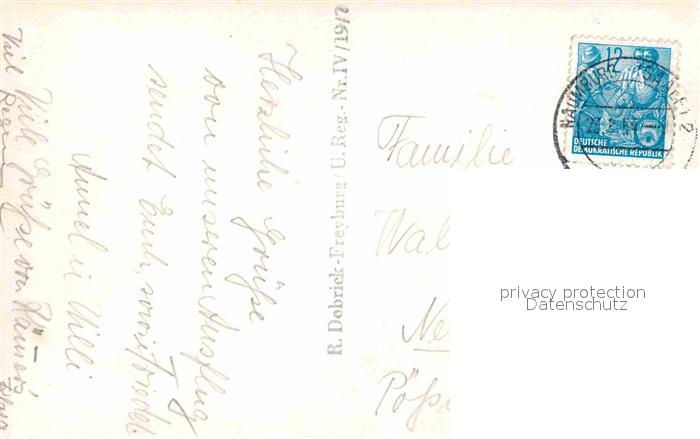 Herzliche Grüße
von unseren Ausflug
sendet Euch, sowie Friedel.
Annel u Willi
Viele Grüße von
Viel
R. Dobrick-Freyburg/U. Reg.-Nr. IV/19/2
Familie
Wal
Ne
Pöß
12
NAUMBURG (SAALE) 2
DEUTSCHE
DEMOKRATISCHE REPUBLIK
privacy protection
Datenschutz